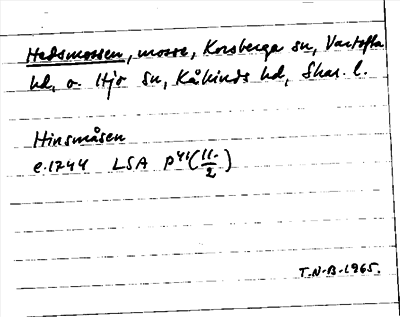 Hedsmossen, mosse, Korsberga sn, Vartofta
hd, o. Hjo sn, Kåkinds hd, Skar. l.
Hinsmåsen
e.1744 LSA P41(11-/2)
T.N-B-1965.